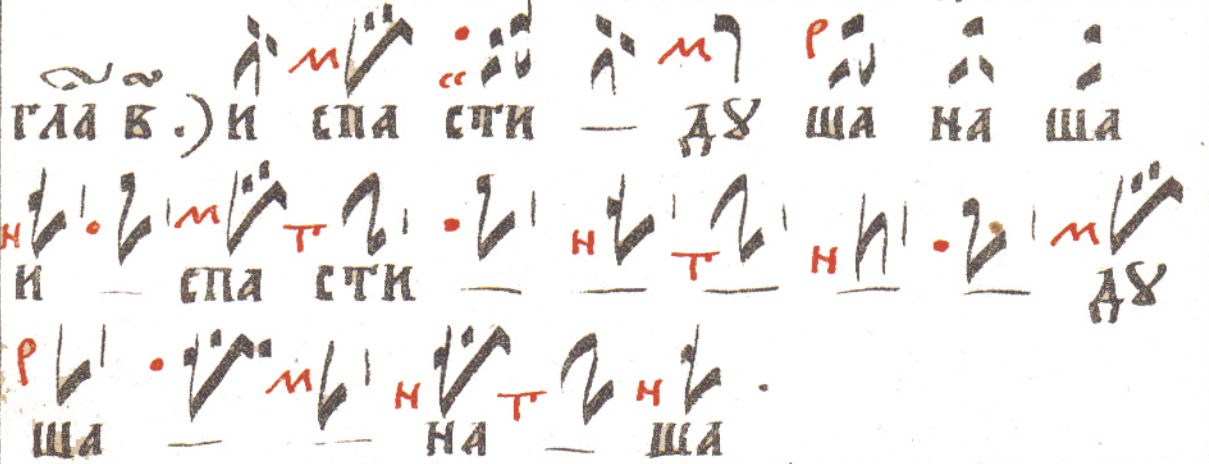 гла в҃ .) и спа сти — дꙋ ша на ша
и — спа сти — — — — — дꙋ
ша — — на — ша .